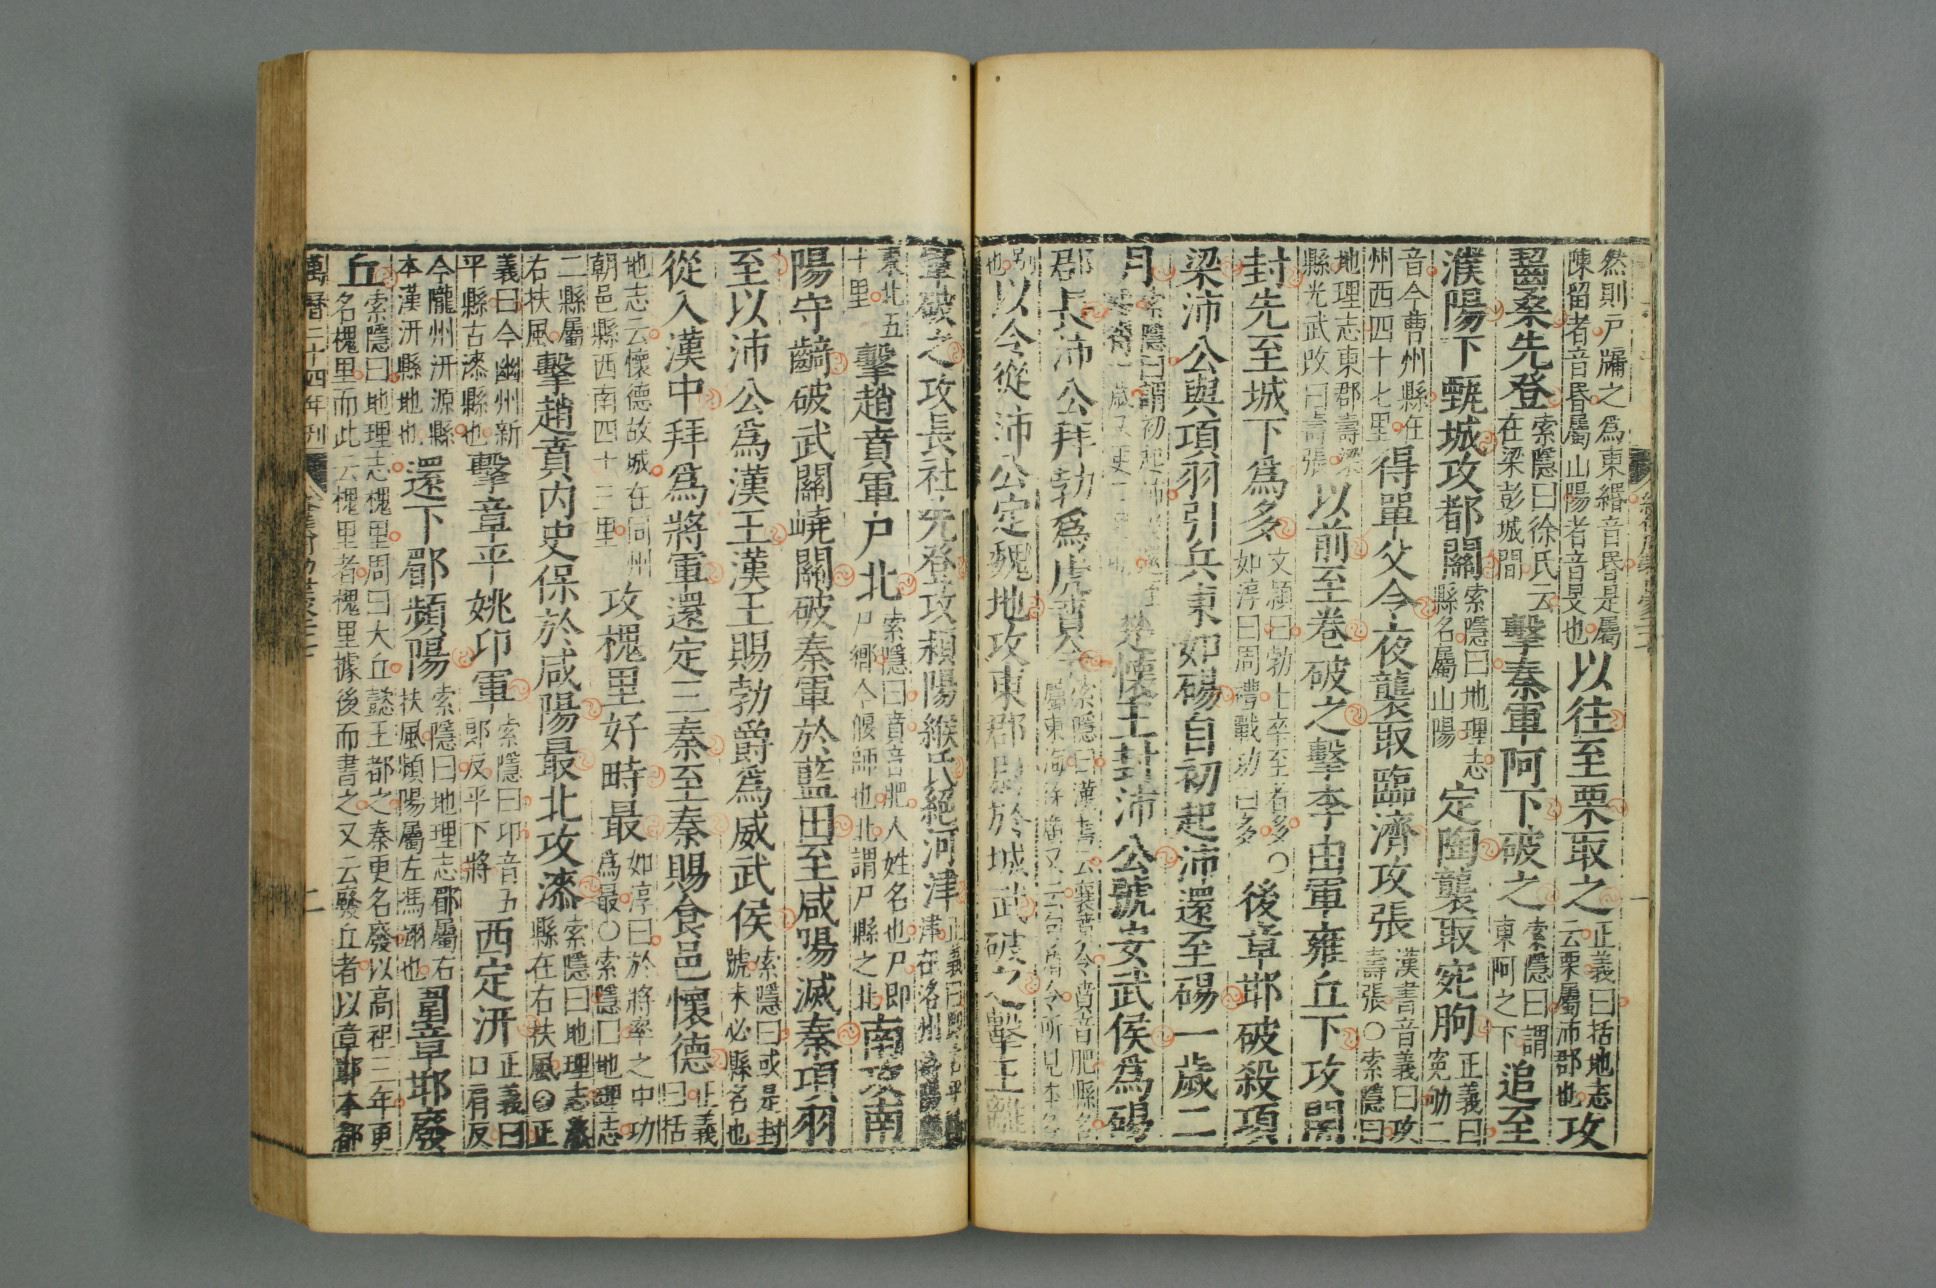 然則戶牖之爲東緡音昏是屬
陳留者音昏屬山陽者音旻也以往至栗取之正義曰括地志
云栗屬沛郡也攻
齧桑先登索隱曰徐氏云
在梁彭城間擊秦軍阿下破之索隱曰謂
東阿之下追至
濮陽下甄城攻都關索隱曰地理志
縣名屬山陽定陶襲取宛朐正義曰
冤劬二
音今曹州縣在
州西四十七里得單父令夜襲取臨濟攻張漢書音義曰攻
壽張○索隱曰
地理志東郡壽梁
縣光武改曰壽張以前至卷破之擊李由軍雍丘下攻開
封先至城下爲多文穎曰勃士卒至者多○
如淳曰周禮戰功曰多後章邯破殺項
梁沛公與項羽引兵東如碭自初起沛還至碭一歲二
月索隱曰謂初起沛
楚懷王封沛公號安武侯爲碭
郡長沛公拜勃爲虎賁令索隱曰漢書云襄賁令賁音肥縣名
屬東海
以令從沛公定魏地攻東郡尉於城武破之擊王離
軍破之攻長社先登攻潁陽緱氏絕河津正義曰
津在洛州
東北五
十里擊趙賁軍尸北索隱曰賁音肥人姓名也尸即
尸鄉今偃師也北謂尸縣之北南攻南
陽守齮破武關嶢關破秦軍於藍田至咸陽滅秦項羽
至以沛公爲漢王漢王賜勃爵爲威武侯索隱曰或是封
號未必縣名也
從入漢中拜爲將軍還定三秦至秦賜食邑懷德正義
曰括
地志云懷德故城在同州
朝邑縣西南四十三里攻槐里好畤最如淳曰於將率之中功
爲最○索隱曰地理志
二縣屬
右扶風擊趙賁內史保於咸陽最北攻漆索隱曰地理志漆
縣在右扶風○正
義曰今豳州新
平縣古漆縣也擊章平姚卬軍索隱曰卬音五
郎反平下將西定汧正義曰
口肩反
今隴州汧源縣
本漢汧縣地也還下郿頻陽索隱曰地理志郿屬右
扶風頻陽屬左馮翊也圍章邯廢
丘索隱曰地理志槐里周曰大丘懿王都之秦更名廢以高祖三年更
名槐里而此云槐里者槐里據後而書之又云廢丘者以章邯本都
萬曆二十四年刊
二